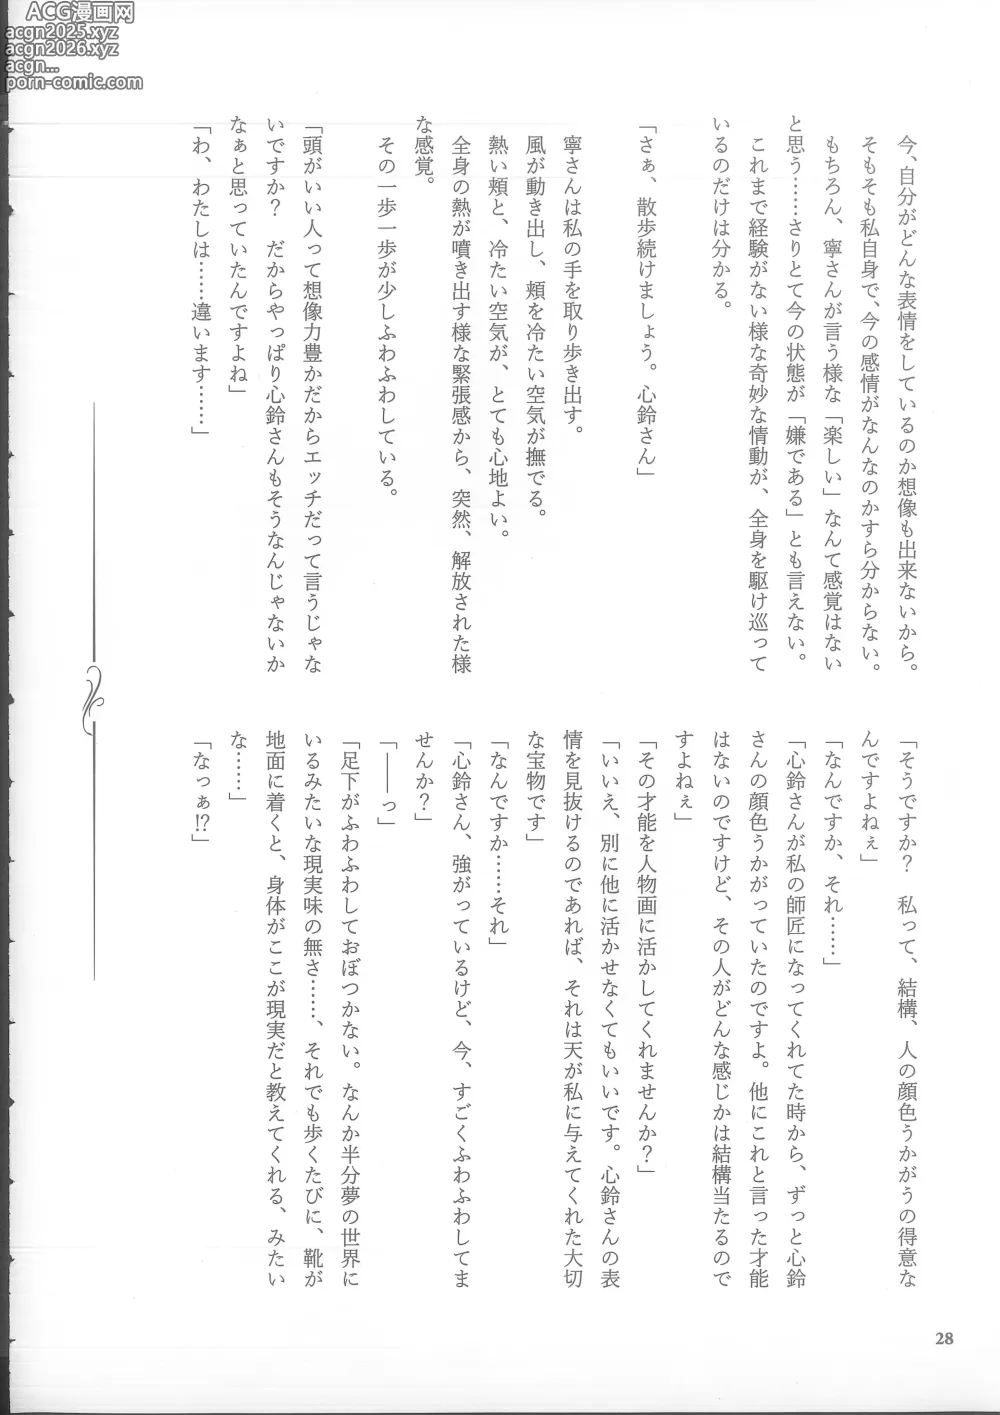 ACG漫画网
acgn2025.xyz
acgn2026.xyz
acgn...
porn-comic.com
今、自分がどんな表情をしているのか想像も出来ないから。
そもそも私自身で、今の感情がなんなのかすら分からない。
もちろん、寧さんが言う様な「楽しい」なんて感覚はない
と思う……さりとて今の状態が「嫌である」とも言えない。
これまで経験がない様な奇妙な情動が、全身を駆け巡って
いるのだけは分かる。
「さぁ、散歩続けましょう。心鈴さん」
寧さんは私の手を取り歩き出す。
風が動き出し、頬を冷たい空気が撫でる。
熱い頬と、冷たい空気が、とても心地よい。
全身の熱が噴き出す様な緊張感から、突然、解放された様
な感覚。
その一歩一歩が少しふわふわしている。
「頭がいい人って想像力豊かだからエッチだって言うじゃな
いですか？　だからやっぱり心鈴さんもそうなんじゃないか
なぁと思っていたんですよね」
「わ、わたしは……違います……」
「そうですか？　私って、結構、人の顔色うかがうの得意な
んですよねぇ」
「なんですか、それ……」
「心鈴さんが私の師匠になってくれてた時から、ずっと心鈴
さんの顔色うかがっていたのですよ。他にこれと言った才能
はないのですけど、その人がどんな感じかは結構当たるので
すよねぇ」
「その才能を人物画に活かしてくれませんか？」
「いいえ、別に他に活かせなくてもいいです。心鈴さんの表
情を見抜けるのであれば、それは天が私に与えてくれた大切
な宝物です」
「なんですか……それ」
「心鈴さん、強がっているけど、今、すごくふわふわしてま
せんか？」
「――っ」
「足下がふわふわしておぼつかない。なんか半分夢の世界に
いるみたいな現実味の無さ……、それでも歩くたびに、靴が
地面に着くと、身体がここが現実だと教えてくれる、みたい
な……」
「なっぁ!?」
28